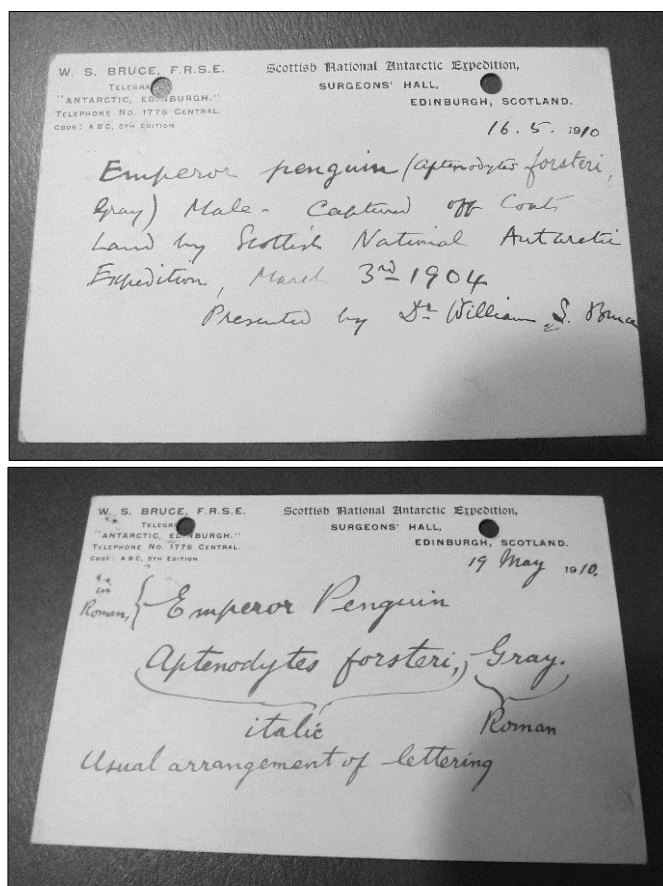 W. S. BRUCE, F.R.S.E.
TELEGRA
"ANTARCTIC, EDINBURGH."
TELEPHONE No. 1776 CENTRAL.
CODE: A B C, 5TH EDITION
Scottish National Antarctic Expedition,
SURGEONS' HALL,
EDINBURGH, SCOTLAND.
16. 5. 1910
Emperor penguin (Aptenodytes forsteri,
Gray) Male - Captured off Coats
Land by Scottish National Antarctic
Expedition, March 3rd 1904
Presented by Dr William S. Bruce
W. S. BRUCE, F.R.S.E.
TELEGRA
"ANTARCTIC, EDINBURGH."
TELEPHONE No. 1776 CENTRAL.
CODE: A B C, 5TH EDITION
Scottish National Antarctic Expedition,
SURGEONS' HALL,
EDINBURGH, SCOTLAND.
19 May 1910.
in
Roman, { Emperor Penguin
Aptenodytes forsteri, Gray.
italic Roman
Usual arrangement of lettering